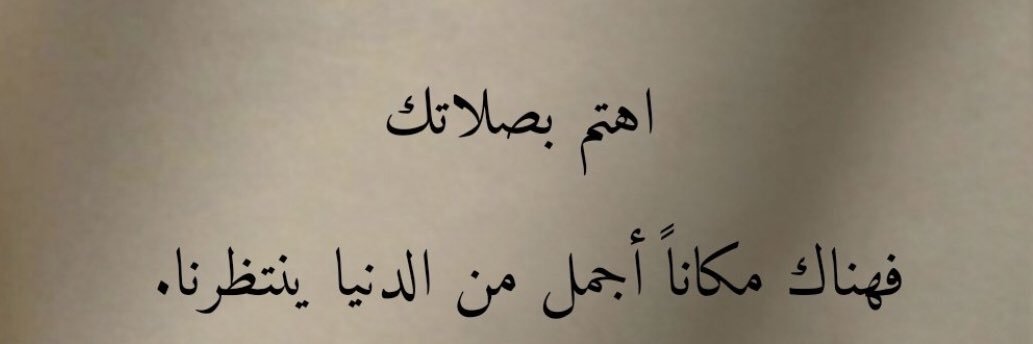 اهتم بصلاتك
فهناك مكاناً أجمل من الدنيا ينتظرنا.